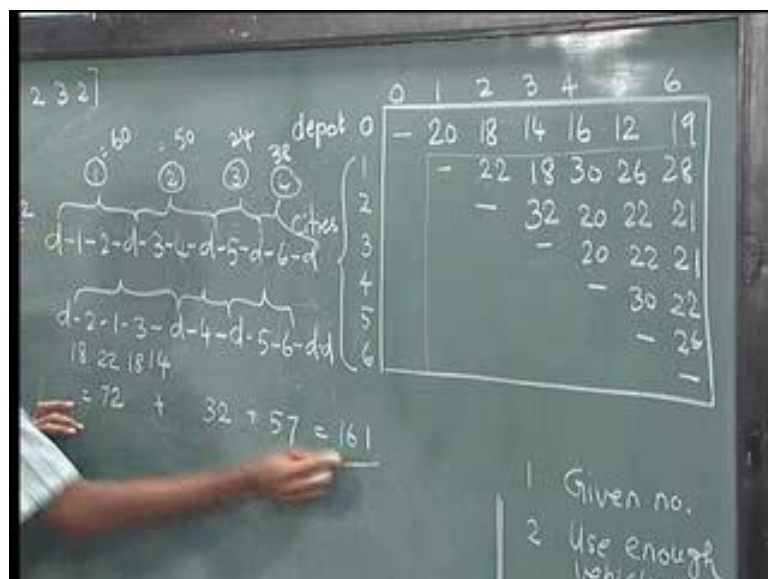 2 3 2]
= 60 = 50 24 38
1 2 3 4
2
d-1-2-d-3-4-d-5-d-6-d
d-2-1-3-d-4-d-5-6-d d
18 22 18 14
= 72 + 32 + 57 = 161
0 1 2 3 4 5 6
depot 0 - 20 18 14 16 12 19
cities
1 - 22 18 30 26 28
2 - 32 20 22 21
3 - 20 22 21
4 - 30 22
5 - 26
6 -
1 Given no.
2 Use enough